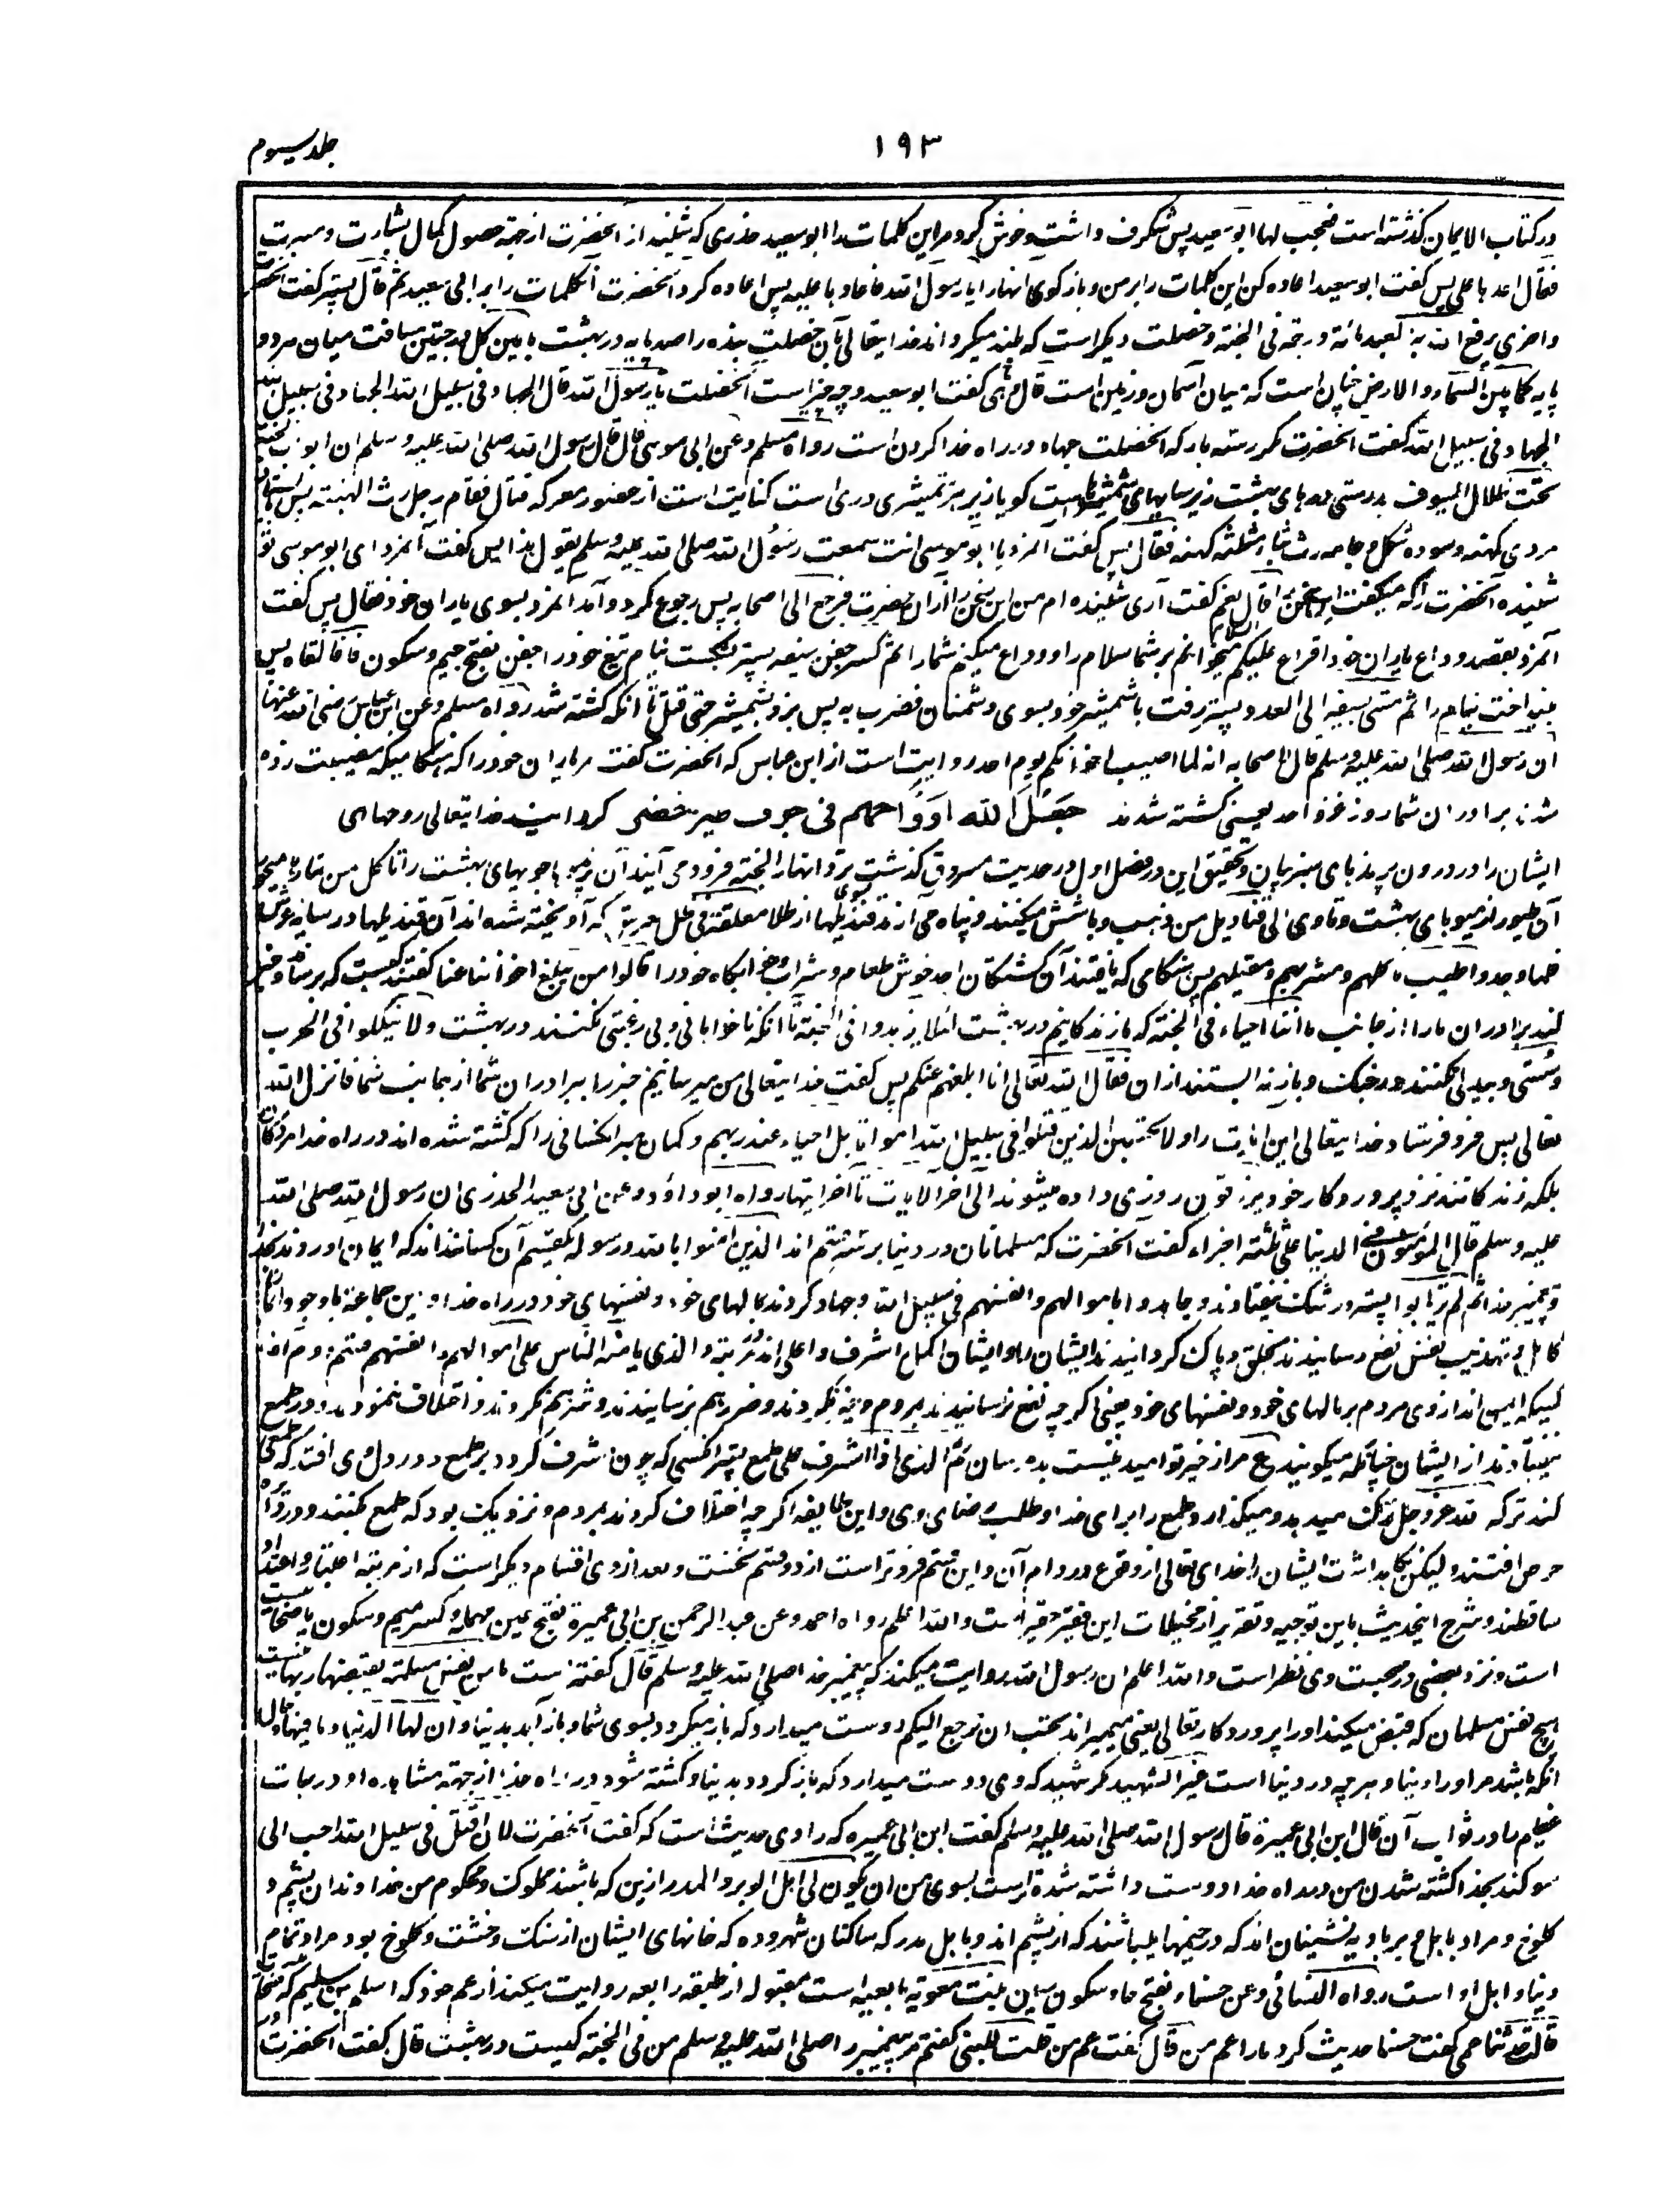 جلد سیوم
۱۹۳
در کتاب الایمان گذشته است فعجب لها ابو سعید پس شگرف داشت و خوش کرد مر این کلمات را ابو سعید خدری که شنید از آنحضرت از جهة حصول کمال بشارت و مسرت
فقال اعدها علی پس گفت ابو سعید اعاده کن این کلمات را بر من و باز گوی آنها را یا رسول الله فاعادها علیه پس اعاده کرد آنحضرت آن کلمات را بر ابی سعید ثم قال پستر گفت آنحضرت
و اخری یرفع الله بها العبد مائة درجة فی الجنة و خصلت دیگر است که بلند میگرداند خدایتعالی بآن خصلت بنده را صد پایه در بهشت ما بین کل درجتین مسافت میان هر دو
پایه کما بین السماء و الارض چنان است که میان آسمان و زمین است قال و ما هی گفت ابو سعید و چه چیز است آنخصلت یا رسول الله قال الجهاد فی سبیل الله الجهاد فی سبیل الله
الجهاد فی سبیل الله گفت آنحضرت مکرر سه بار که آنخصلت جهاد در راه خدا کردن است رواه مسلم و عن ابی موسی قال قال رسول الله صلی الله علیه و سلم ان ابواب الجنة
تحت ظلال السیوف بدرستی درهای بهشت زیر سایهای شمشیرهاست گویا زیر هر شمشیری دری است کنایت است از حضور معرکه قتال فقام رجل رث الهیئة پس ایستاد
مردی کهنه و سوده شکل و جامه رث بثاء مثلثه کهنه فقال پس گفت آنمرد یا ابو موسی انت سمعت رسول الله صلی الله علیه و سلم یقول هذا پس گفت آنمرد ای ابو موسی تو
شنیده آنحضرت را که میگفت این سخن را قال نعم گفت آری شنیده ام من این سخن را از آن حضرت فرجع الی اصحابه پس رجوع کرد و آمد آنمرد بسوی یاران خود فقال پس گفت
آنمرد بقصد وداع یاران خود اقرا علیکم السلام میخوانم بر شما سلام را و وداع میکنم شما را ثم کسر جفن سیفه پستر بشکست نیام تیغ خود را جفن بفتح جیم و سکون فا فالقاه پس
بینداخت نیام را ثم مشی بسیفه الی العدو پستر رفت با شمشیر خود بسوی دشمنان فضرب به پس بزد بشمشیر حتی قتل تا آنکه کشته شد رواه مسلم و عن ابن عباس رضی الله عنهما
ان رسول الله صلی الله علیه و سلم قال لاصحابه انه لما اصیب اخوانکم یوم احد روایت است از ابن عباس که آنحضرت گفت مر یاران خود را که هنگامیکه مصیبت زده
شدند برادران شما روز غزوه احد یعنی کشته شدند جعل الله ارواحهم فی جوف طیر خضر گردانید خدایتعالی روحهای
ایشان را در درون پرندهای سبز بیان و تحقیق این در فصل اول در حدیث مسروق گذشت ترد انهار الجنة فرود می آیند آن پرندها جویهای بهشت را تاکل من ثمارها میخورند
آن طیور از میوهای بهشت و تاوی الی قنادیل من ذهب و باشش میکنند و پناه می آرند بسوی قندیلها از طلا معلقة فی ظل العرش که آویخته شده اند آن قندیلها در سایه عرش
فلما وجدوا طیب ماکلهم و مشربهم و مقیلهم پس هنگامی که یافتند آن کشتگان احد خوش طعام و شراب و خوابگاه خود را قالوا من یبلغ اخواننا عنا گفتند کیست که برساند و خبر
کند برادران ما را از جانب ما اننا احیاء فی الجنة که ما زندگانیم در بهشت لئلا یزهدوا فی الجنة تا آنکه ناخواهانی و بی رغبتی نکنند در بهشت و لا ینکلوا فی الحرب
و سستی و بیدلی نکنند در جنگ و باز نه ایستند از ان فقال الله تعالی انا ابلغهم عنکم پس گفت خدایتعالی من میرسانم خبر را برادران شما از جانب شما فانزل الله
تعالی پس فرو فرستاد خدایتعالی این آیت را و لا تحسبن الذین قتلوا فی سبیل الله امواتا بل احیاء عند ربهم و گمان مبر آنکسانی را که کشته شده اند در راه خدا مردگان
بلکه زندگانند نزد پروردگار خود یرزقون روزی داده میشوند الی آخر الایات تا آخر آیتها رواه ابو داؤد و عن ابی سعید الخدری ان رسول الله صلی الله
علیه و سلم قال المؤمنون فی الدنیا علی ثلثة اجزاء گفت آنحضرت که مسلمانان در دنیا بر سه قسم اند الذین آمنوا بالله و رسوله یکقسم آن کسانند که ایمان آوردند بخدا
و پیغمبر خدا ثم لم یرتابوا پستر در شک نیفتادند و جاهدوا باموالهم و انفسهم فی سبیل الله و جهاد کردند بمالهای خود و نفسهای خود در راه خدا و این جماعة با وجود
کامل و تهذیب نفس نفع رسانیدند بخلق و پاک گردانیدند ایشان را و ایشان اکمل و اشرف و اعلی اند مرتبة و الذی یامنه الناس علی اموالهم و انفسهم قسم دوم آن
کسیکه ایمن اند از وی مردم بر مالهای خود و نفسهای خود یعنی اگرچه نفع نرسانیدند بمردم و ضرر هم نرسانیدند و شر هم نکردند و اختلاف ننمودند و در طمع
نیفتادند از ایشان چنانکه میگویند ع مرا از خیر تو امید نیست بد مرسان ثم الذی اذا اشرف علی طمع پستر آنکسی که چون مشرف گردد بر طمع و در دل وی افتد که طمعی
کند ترکه لله عز و جل ترک میدهد و میگذارد طمع را برای خدا و طلب رضای وی و این طایفه اگرچه اختلاف کردند بمردم و نزدیک بود که طمع کنند و در ورطه
حرص افتند و لیکن نگاهداشت ایشان را خدای تعالی از وقوع و دوام آن و این قسم فروتر است از دو قسم نخست و بعد از وی اقسام دیگر است که از مرتبه اعتبار و اعتداد
ساقطند و شرح اینحدیث باین توجیه و تقریر از مخیلات این فقیر حقیر است و الله اعلم رواه احمد و عن عبد الرحمن بن ابی عمیرة بفتح عین مهمله و کسر میم و سکون یا صحابی
است و نزد بعضی در صحبت وی نظر است و الله اعلم ان رسول الله روایت میکند که پیغمبر خدا صلی الله علیه و سلم قال گفته است ما من نفس مسلمة یقبضها ربها نیست
هیچ نفس مسلمان که قبض میکند او را پروردگار تعالی یعنی میمیراند تحب ان ترجع الیکم دوست میدارد که باز میگردد بسوی شما و باز آید بدنیا و ان لها الدنیا و ما فیها و حال
آنکه باشد مر او را دنیا و هر چه در دنیا است غیر الشهید مگر شهید که وی دوست میدارد که باز گردد بدنیا و کشته شود در راه خدا از جهة مشاهده او درجات
عظیم را در ثواب آن قال ابن ابی عمیرة قال رسول الله صلی الله علیه و سلم گفت ابن ابی عمیره که راوی حدیث است که گفت آنحضرت لان اقتل فی سبیل الله احب الی
سوگند بخدا کشته شدن من در راه خدا دوست داشته شده تر است بسوی من ان یکون لی اهل الوبر و المدر ازین که باشند مملوک و محکوم من خداوندان پشم و
کلوخ و مراد باهل وبر بادیه نشینان اند که در خیمها میباشند که از پشم اند و باهل مدر که ساکنان شهر و ده که خانهای ایشان از سنگ و خشت و کلوخ بود مراد تمام
دنیا و اهل او است رواه النسائی و عن حسناء بفتح حا و سکون سین بنت معویه تابعیه است مقبوله از طبقه رابعه روایت میکند از عم خود که اسلم بن سلیم
قالت حدثنا عمی گفت حسنا حدیث کرد ما را عم من قال گفت عم من قلت للنبی گفتم مر پیغمبر را صلی الله علیه و سلم من فی الجنة کیست در بهشت قال گفت آنحضرت